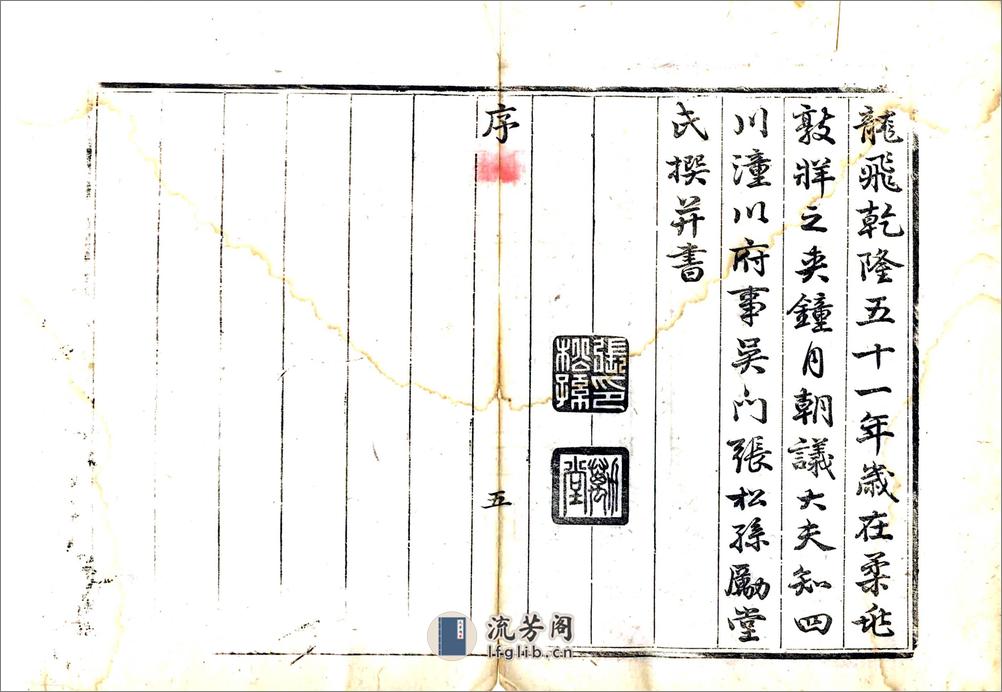 龍飛乾隆五十一年歲在柔兆
敦牂之夾鐘月朝議大夫知四
川潼川府事吳門張松孫勵堂
氏撰并書
張松孫印
勵堂
序
五
流芳阁
lfglib.cn